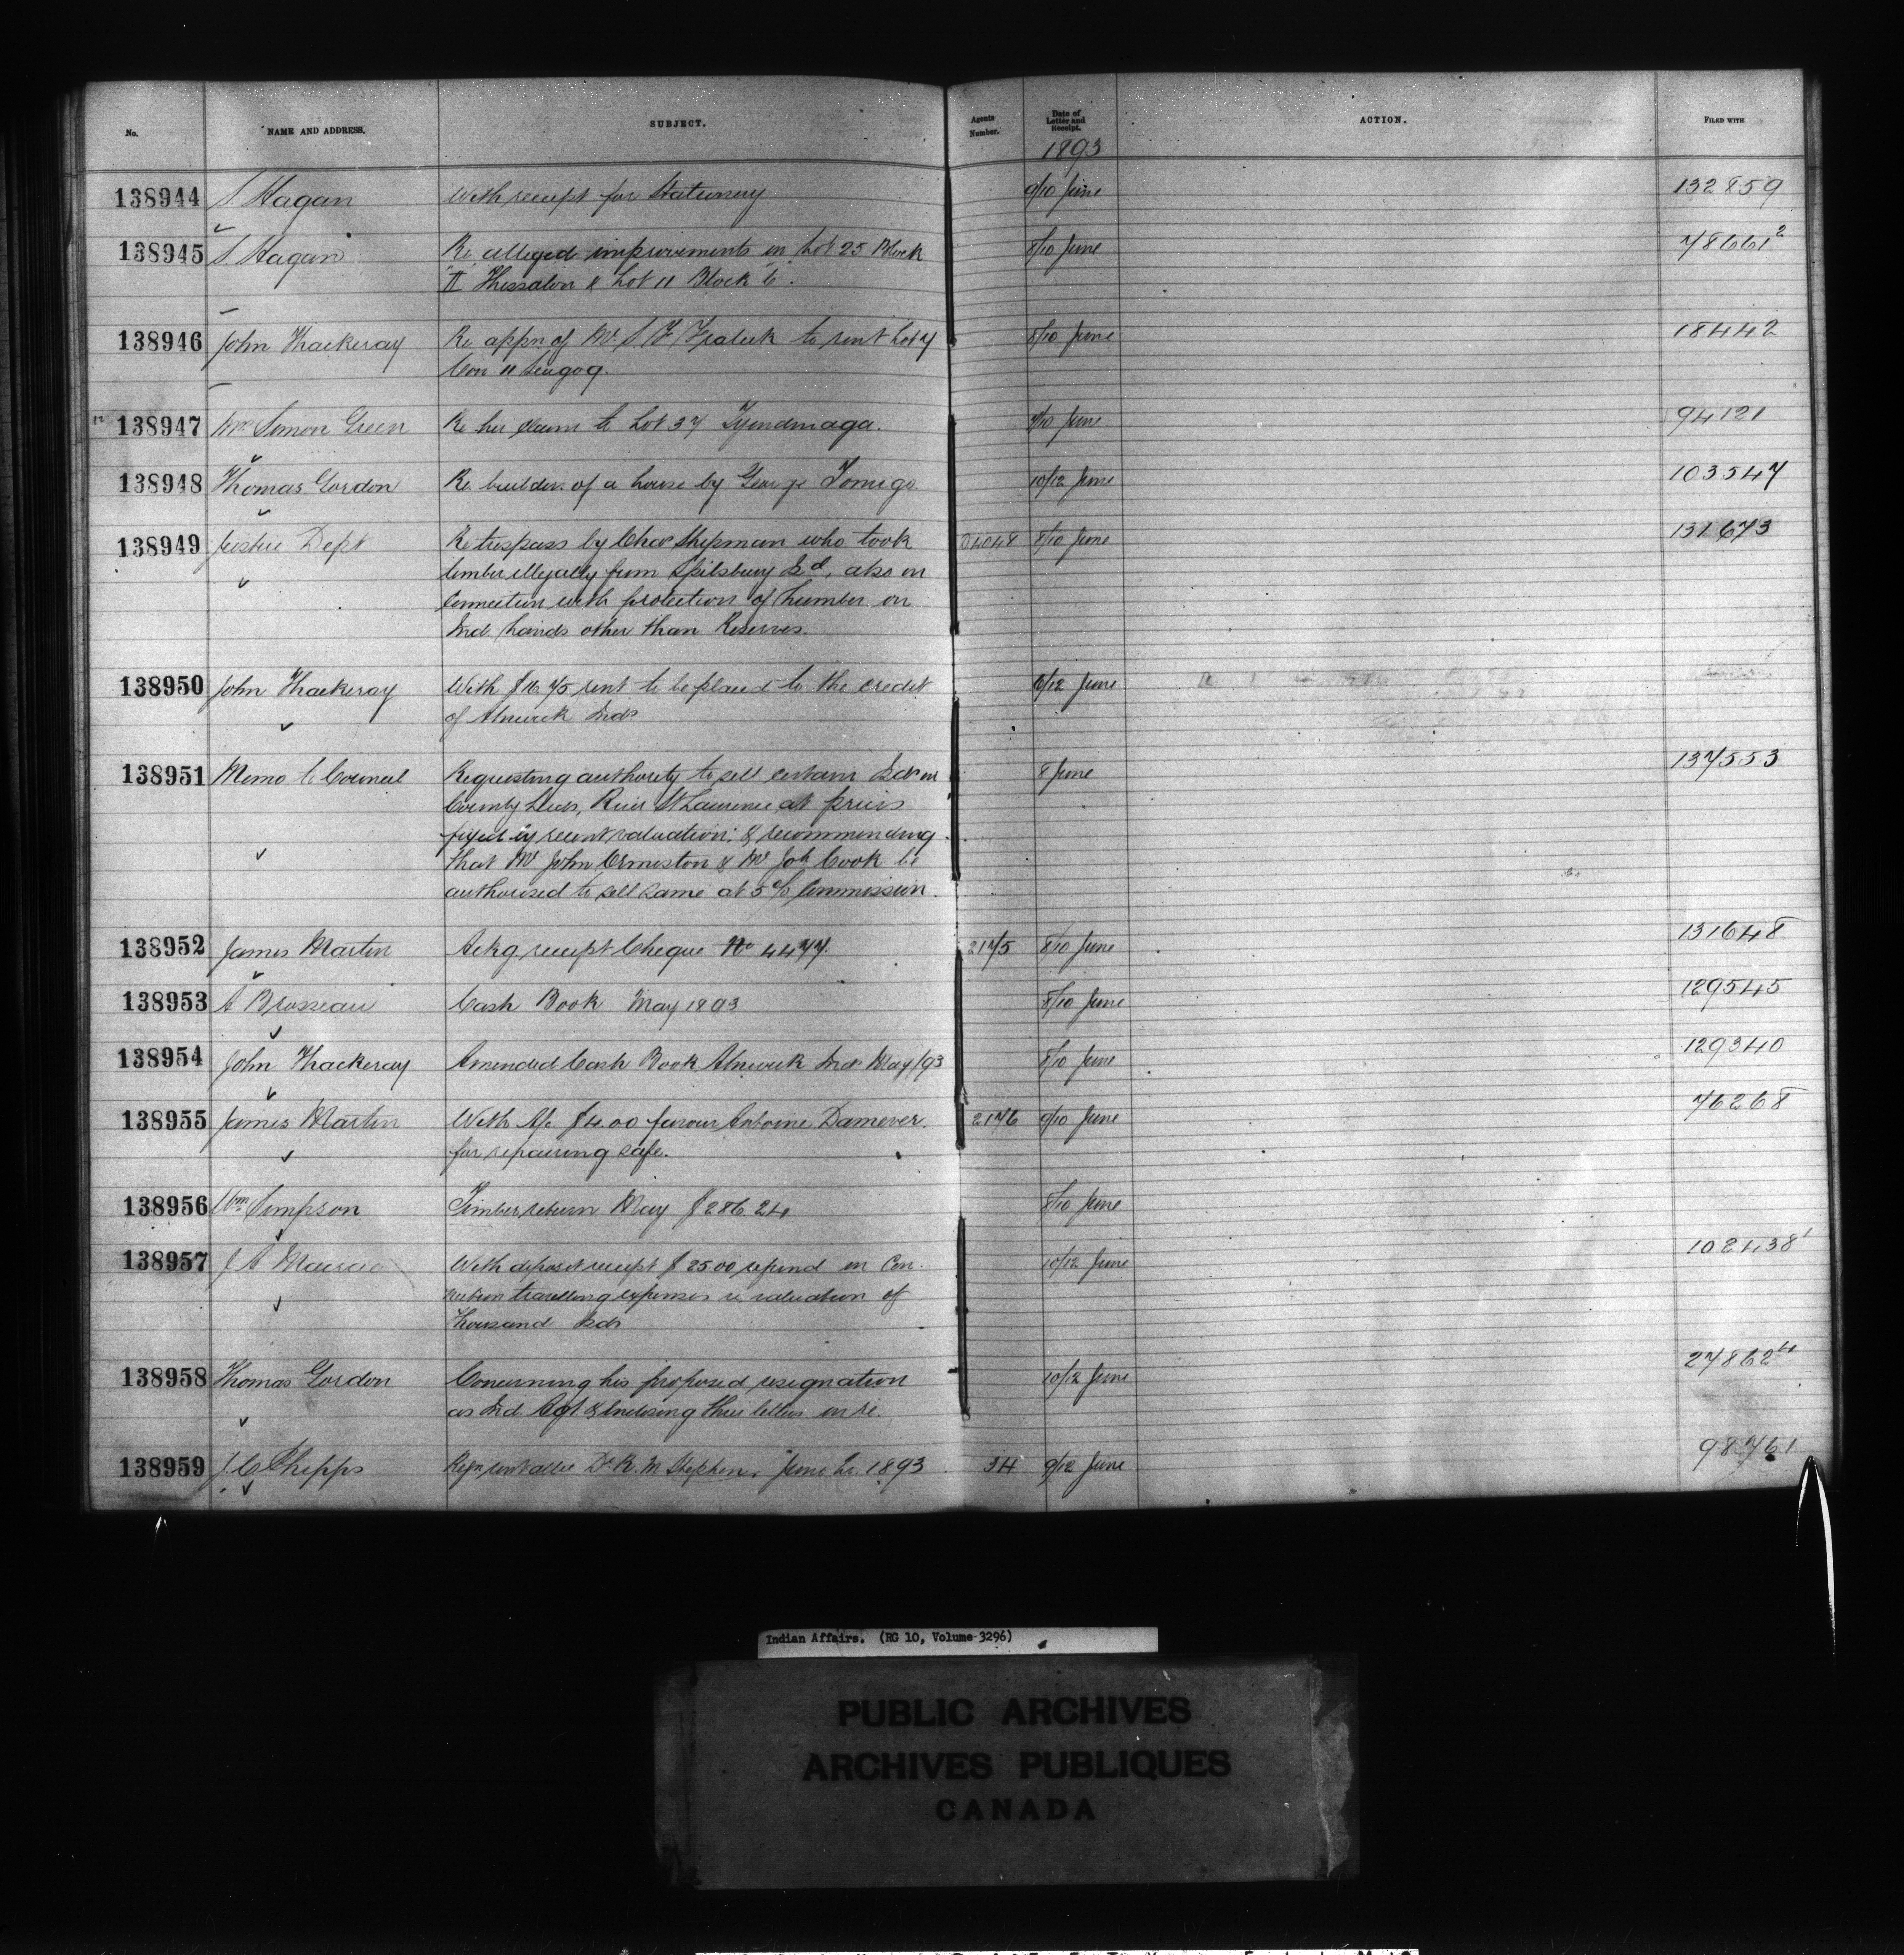 No. NAME AND ADDRESS. SUBJECT. Agents Number. Date of Letter and Receipt. ACTION. FILED WITH
1893
138944 S. Hagan With receipt for Stationery 9/10 June 132859
138945 S. Hagan Re alleged improvements on Lot 25 Block 8/10 June 78661²
Thessalon & Lot 11 Block
138946 John Thackeray Re appn of Mr. S F Fraleck to rent Lot 7 8/10 June 18442
Con 11 Scugog.
138947 Mrs Simon Green Re her claim to Lot 37 Tyendinaga. 9/10 June 94121
138948 Thomas Gordon Re building of a house by George Tomigo 10/12 June 103547
138949 Justice Dept Re trespass by Chas Shipman who took 8/10 June 131673
timber illegally from Spilsbury Isd, also in
connection with protection of timber on
Ind. Lands other than Reserves.
138950 John Thackeray With $16.75 rent to be placed to the credit 6/12 June
of Alnwick Inds
138951 Memo to Council Requesting authority to sell certain Isds in 8 June 137553
County Leeds, River St Laurence, at prices
fixed by recent valuation; & recommending
that Mr John Ormiston & Mr Joh Cook be
authorised to sell same at 5% Commission.
138952 James Martin Ackg. receipt Cheque No 4477. 2175 8/10 June 131648
138953 A Brosseau Cash Book May 1893 8/10 June 129545
138954 John Thackeray Amended Cash Book Alnwick Inds May/93 8/10 June 129340
138955 James Martin With A/c $4.00 favour Antoine Damever. 2176 9/10 June 76268
for repairing safe.
138956 Wm Simpson Timber return May $286.24 8/10 June
138957 J A With deposit receipt $25.00 refund in Con- 10/12 June 102438¹
nection travelling expenses re valuation of
Thousand Isds
138958 Thomas Gordon Concerning his proposed resignation 10/12 June 27862⁴
as Ind. Agt. & enclosing three letters in re.
138959 J. C. Phipps Dr. R. M Stephen, June Qr. 1893 34 9/12 June 98761
Indian Affairs. (RG 10, Volume 3296)
PUBLIC ARCHIVES
ARCHIVES PUBLIQUES
CANADA